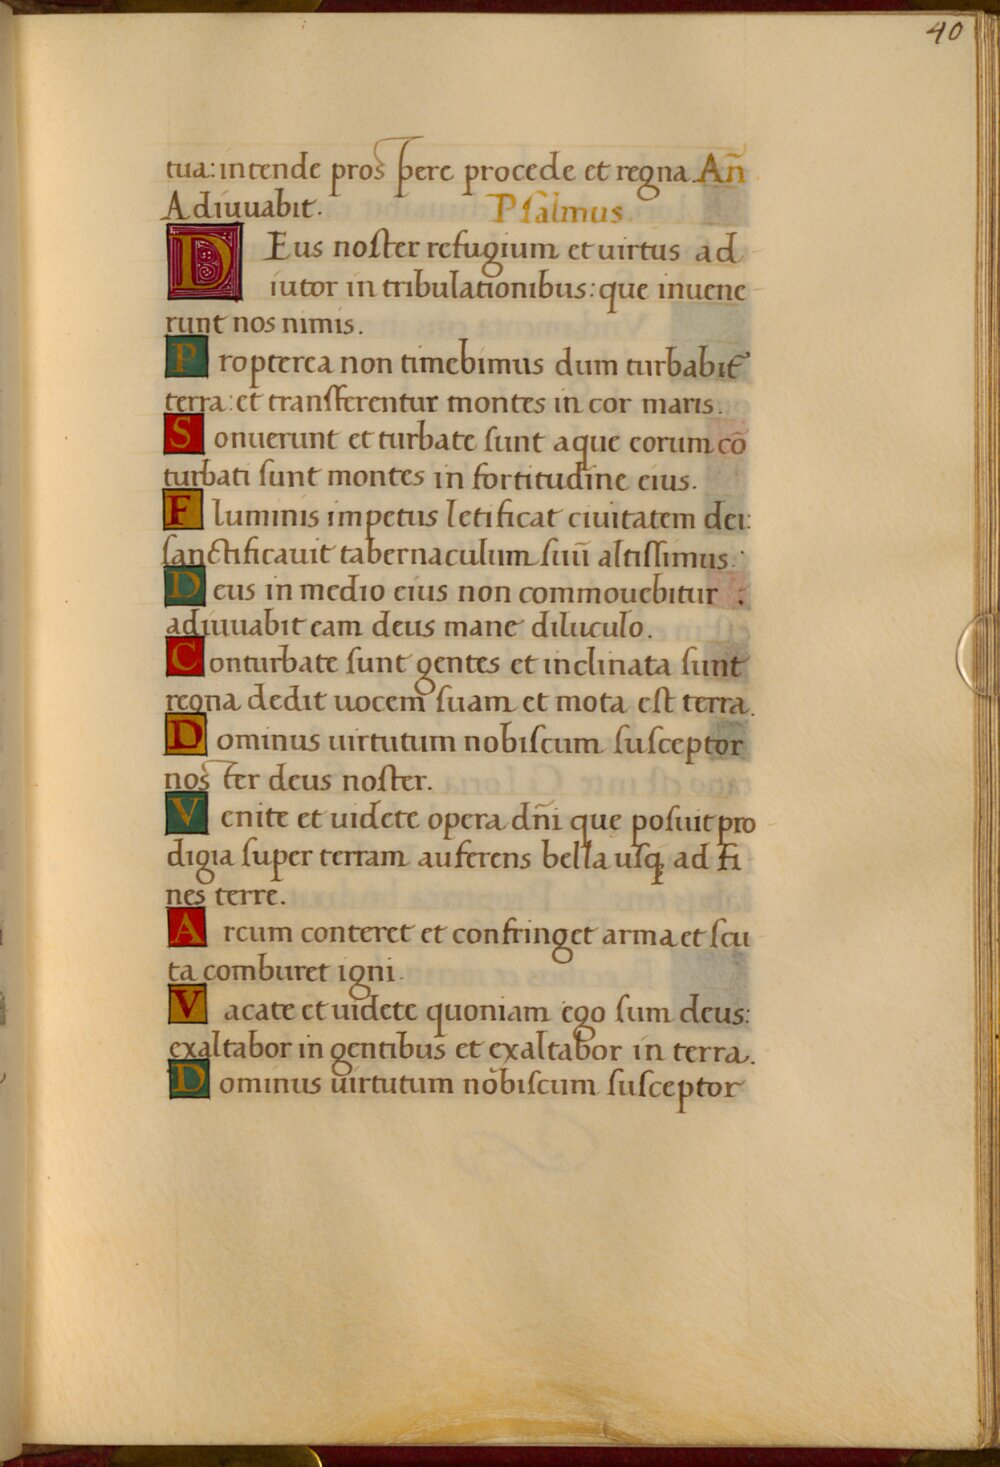 40
tua: intende prospere procede et regna. Añ
Adiuuabit. Psalmus.
DEus noster refugium et uirtus ad
iutor in tribulationibus: que inuene
runt nos nimis.
Propterea non timebimus dum turbabit᷑
terra: et transferentur montes in cor maris.
Sonuerunt et turbate sunt aque eorum cō
turbati sunt montes in fortitudine eius.
Fluminis impetus letificat ciuitatem dei:
sanctificauit tabernaculum suū altissimus.
Deus in medio eius non commouebitur :
adiuuabit eam deus mane diluculo.
Conturbate sunt gentes et inclinata sunt
regna dedit uocem suam et mota est terra.
Dominus uirtutum nobiscum susceptor
noster deus noster.
Venite et uidete opera dñi que posuit pro
digia super terram auferens bella usq; ad fi
nes terre.
Arcum conteret et confringet arma et scu
ta comburet igni.
Vacate et uidete quoniam ego sum deus:
exaltabor in gentibus et exaltabor in terra.
Dominus uirtutum nobiscum susceptor